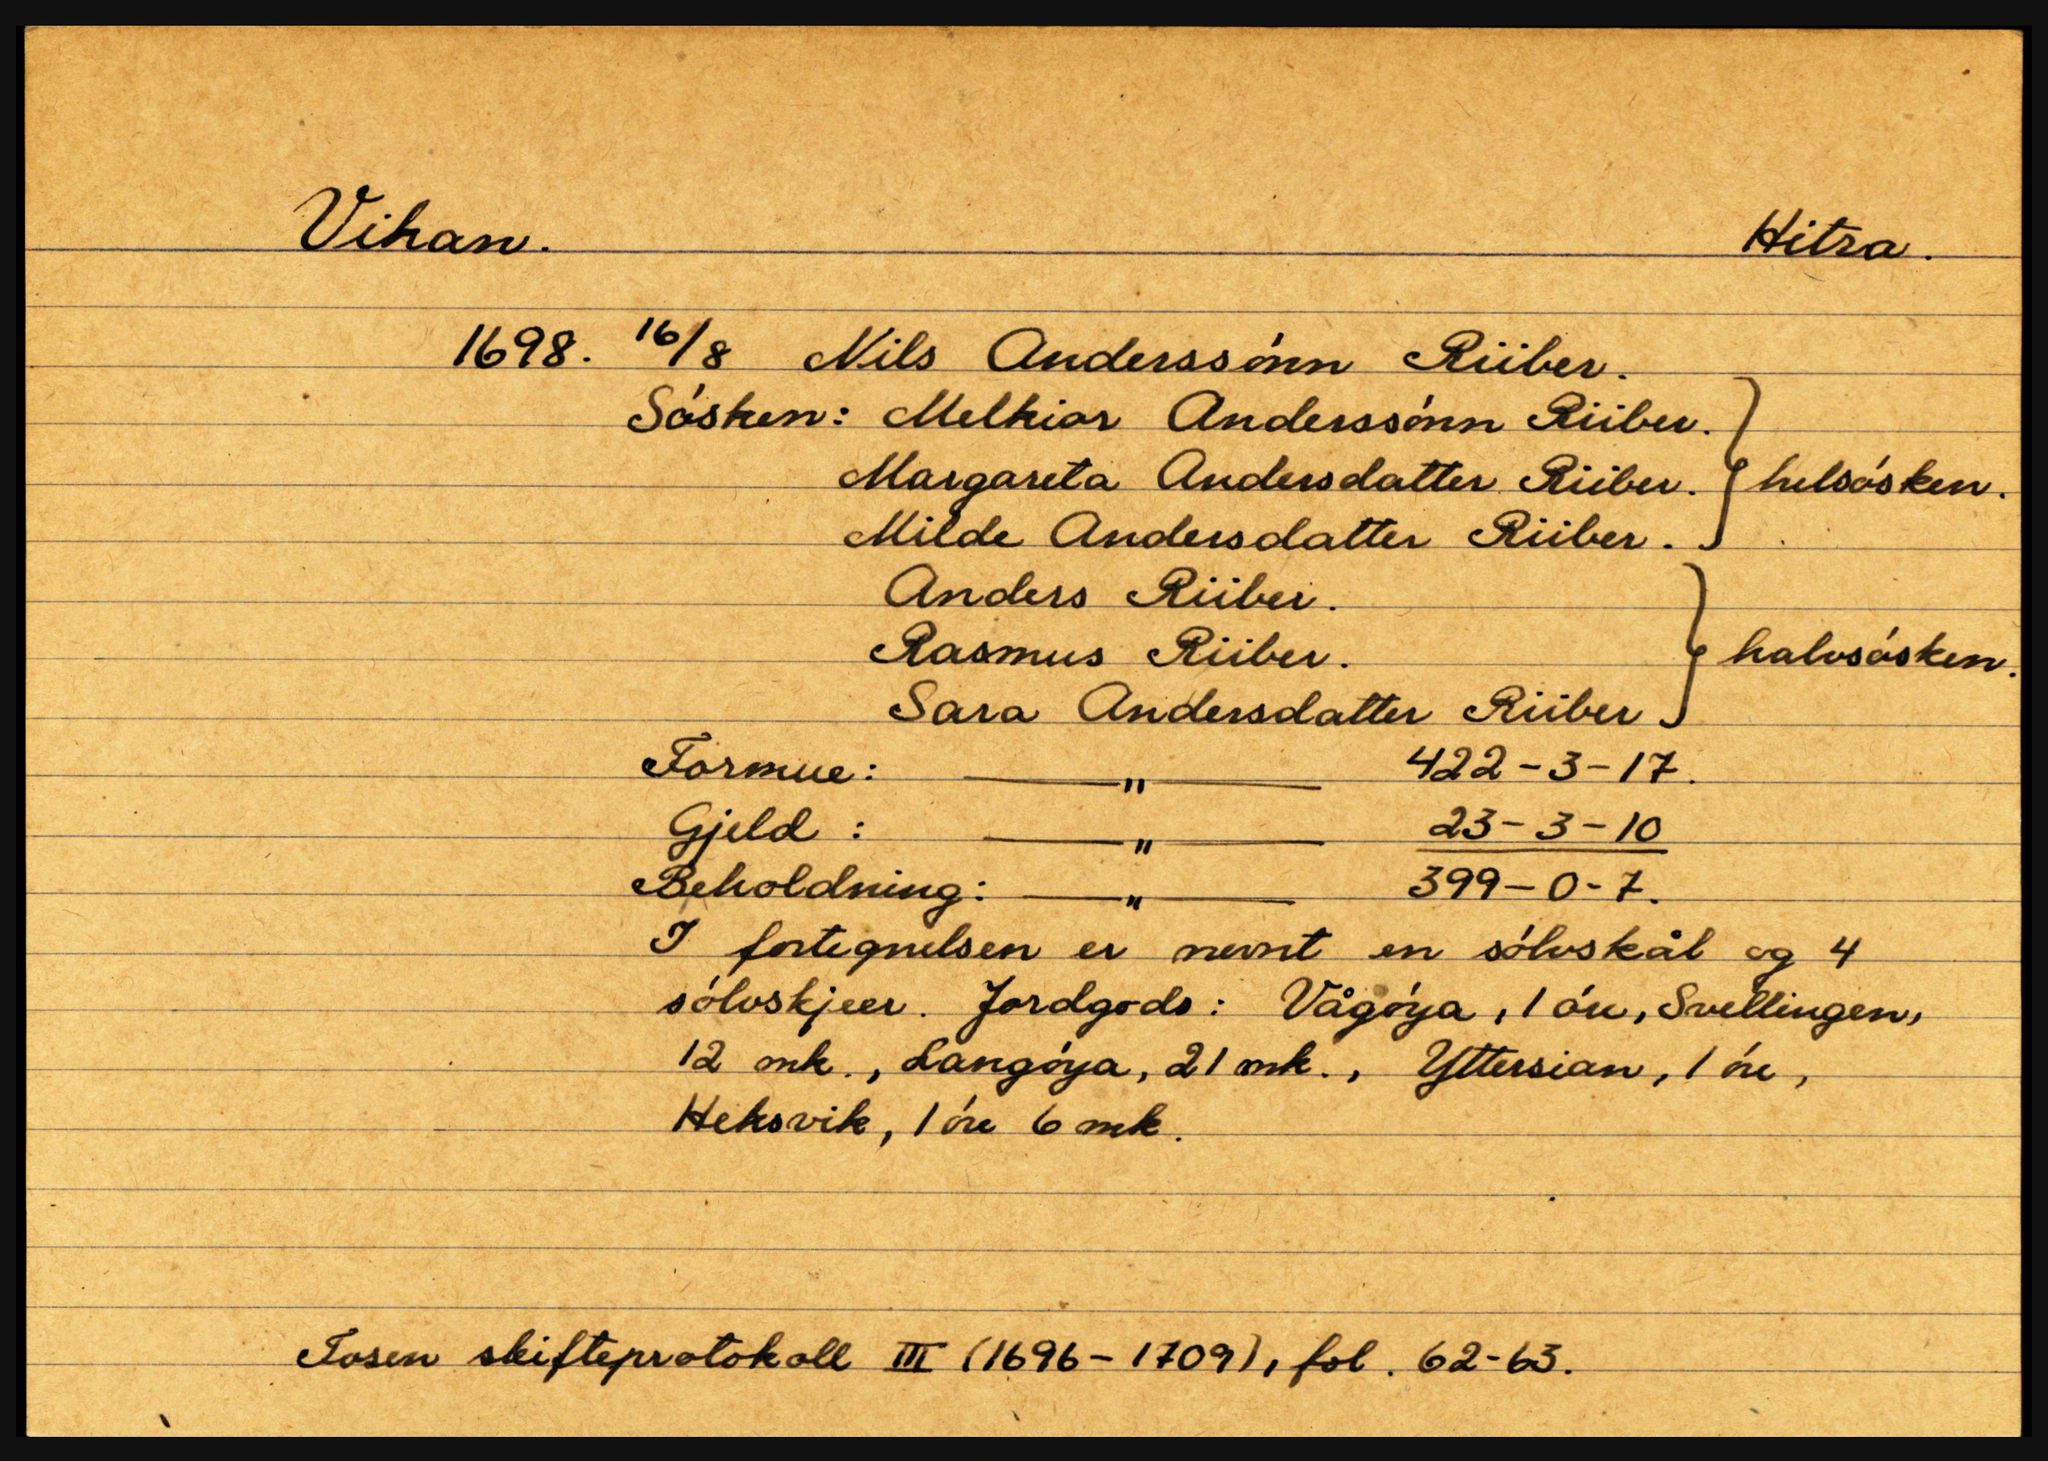 Vihan. Hitra.
1698. 16/8 Nils Anderssónn Riiber.
Sósken: Melkior Anderssónn Riiber.
Margareta Andersdatter Riiber. helsósken.
Milde Andersdatter Riiber.
Anders Riiber.
Rasmus Riiber. halvsósken.
Sara Andersdatter Riiber
Formue: —"— 422-3-17.
Gjeld: —"— 23-3-10
Beholdning: —"— 399-0-7.
I fortegnelsen er nevnt en sólvskål og 4
sólvskjeer. Jordgods: Vågóya, 1 óre, Svellingen,
12 mk., Langóya, 21 mk., Yttersian, 1 óre,
Heksvik, 1 óre 6 mk.
Fosen skifteprotokoll III (1696-1709), fol. 62-63.